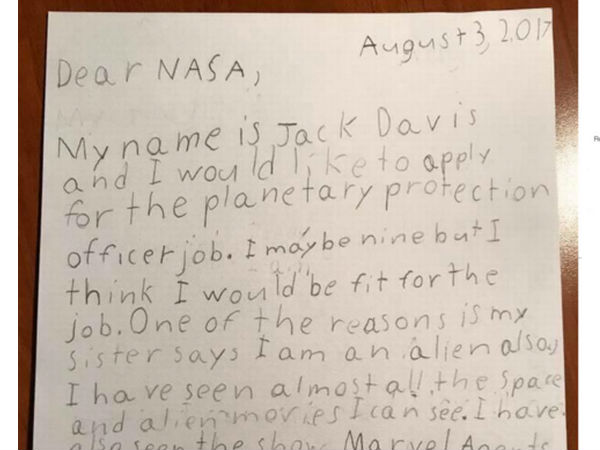 August 3, 2017
Dear NASA,
My name is Jack Davis
and I would like to apply
for the planetary protection
officer job. I may be nine but I
think I would be fit for the
job. One of the reasons is my
sister says I am an alien also,
I have seen almost all the space
and alien movies I can see. I have
also seen the show Marvel Agents